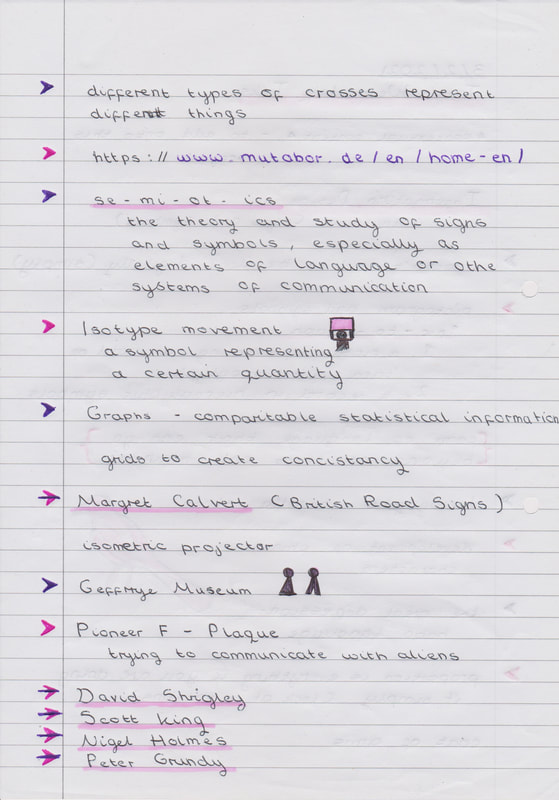 different types of crosses represent
different things
https://www.mutabor.de/en/home-en/
se-mi-ot-ics
the theory and study of signs
and symbols, especially as
elements of language or othe
systems of communication
Isotype movement
a symbol representing
a certain quantity
Graphs - comparitable statistical information
grids to create concistancy
Margret Calvert (British Road Signs)
isometric projector
Geffrye Museum
Pioneer F - Plaque
trying to communicate with aliens
David Shrigley
Scott King
Nigel Holmes
Peter Grundy